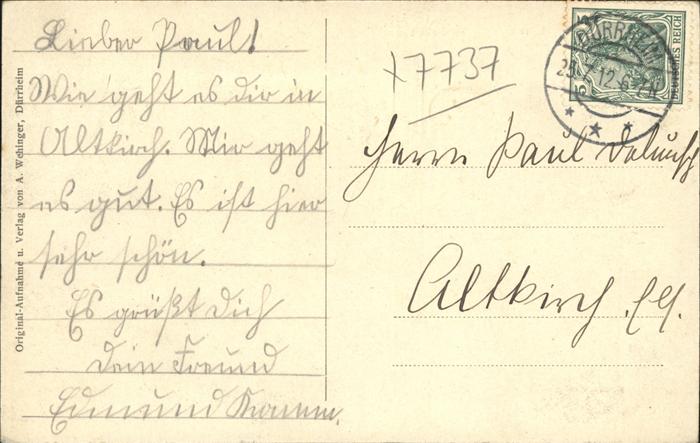 Lieber Paul!
Wie geht es dir in
Altkirch. Mir geht
es gut. Es ist hier
sehr schön.
Es grüßt Dich
Dein Freund
Edmund
Original-Aufnahme u. Verlag von A. Wehinger, Dürrheim
+7737
DÜRRHEIM
12.6-7N
5
DEUTSCHES REICH
Herrn Paul
Altkirch